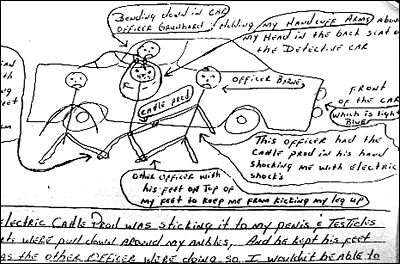 Bending down in CAR
OFFICER GRUNHARD: Holding my HANDCUFF ARMS above
my HEAD in the back seat of
the Detective CAR
OFFICER BYRNE
CATTLE PROD
FRONT
OF the CAR
which is light
Blue
This OFFICER HAD the
CAttle PROD in his HAND
shocking me with electric
shocks
Other OFFICER with
his Feet ON Top of
my Feet to Keep me FROM Kicking my leg up
Electric CAttle PROD was sticking it to my penis & Testicles
were pull down AROUND my ANKles, AND he Kept his Feet
AS the other OFFICER were doing so I wouldn't be Able to